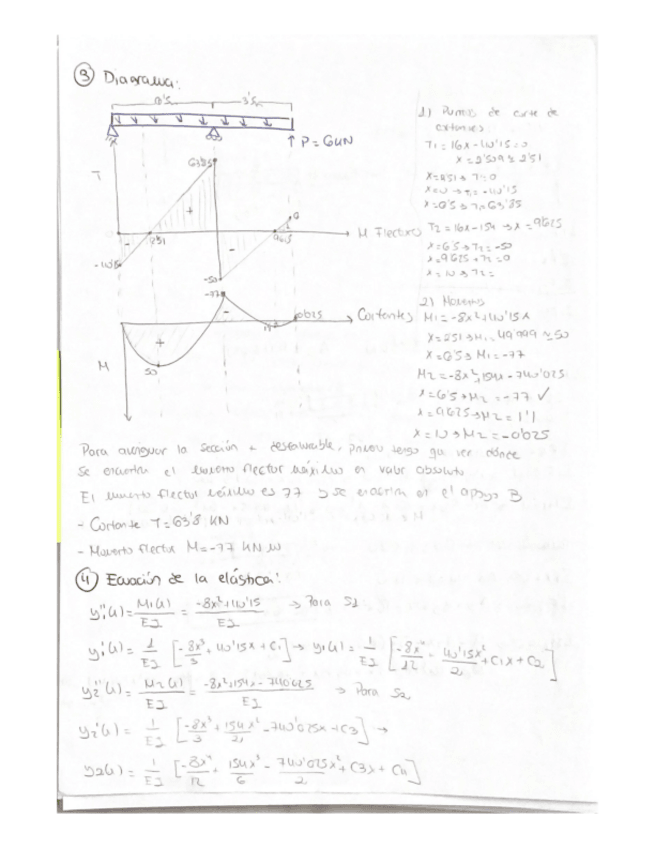 ③ Diagrama:
6'5m 3'5m
P = 6 kN
T
63'85
+
-
2'51
-40'15
-
9'625
6
M Flectores
-50
-77
-
Cortantes
0'625
1'1
+
50
M
1) Puntos de corte de
cortantes
T1 = 16x - 40'15 = 0
x = 2'509 ≈ 2'51
x = 2'51 → T = 0
x = 0 → T1 = -40'15
x = 6'5 → T1 = 63'85
T2 = 16x - 154 → x = 9'625
x = 6'5 → T2 = -50
x = 9'625 → T2 = 0
x = 10 → T2 =
2) Momentos
M1 = -8x² + 40'15x
x = 2'51 → M1 = 49'999 ≈ 50
x = 6'5 → M1 = -77
M2 = -8x² + 154x - 740'025
x = 6'5 → M2 = -77 ✓
x = 9'625 → M2 = 1'1
x = 10 → M2 = -0'025
Para averiguar la sección + desfavorable, primero tengo que ver dónde
se encuentra el momento flector máximo en valor absoluto
El momento flector máximo es 77 y se encuentra en el apoyo B
- Cortante T = 63'8 kN
- Momento flector M = -77 kN m
④ Ecuación de la elástica:
y1''(x) = M1(x)/EI = -8x² + 40'15/EI → Para S1
y1'(x) = 1/EI [-8x³/3 + 40'15x + C1] → y1(x) = 1/EI [-8x⁴/12 + 40'15x²/2 + C1x + C2]
y2''(x) = M2(x)/EI = -8x² + 154x - 740'025/EI → Para S2
y2'(x) = 1/EI [-8x³/3 + 154x²/2 - 740'025x + C3] →
y2(x) = 1/EI [-8x⁴/12 + 154x³/6 - 740'025x²/2 + C3x + C4]